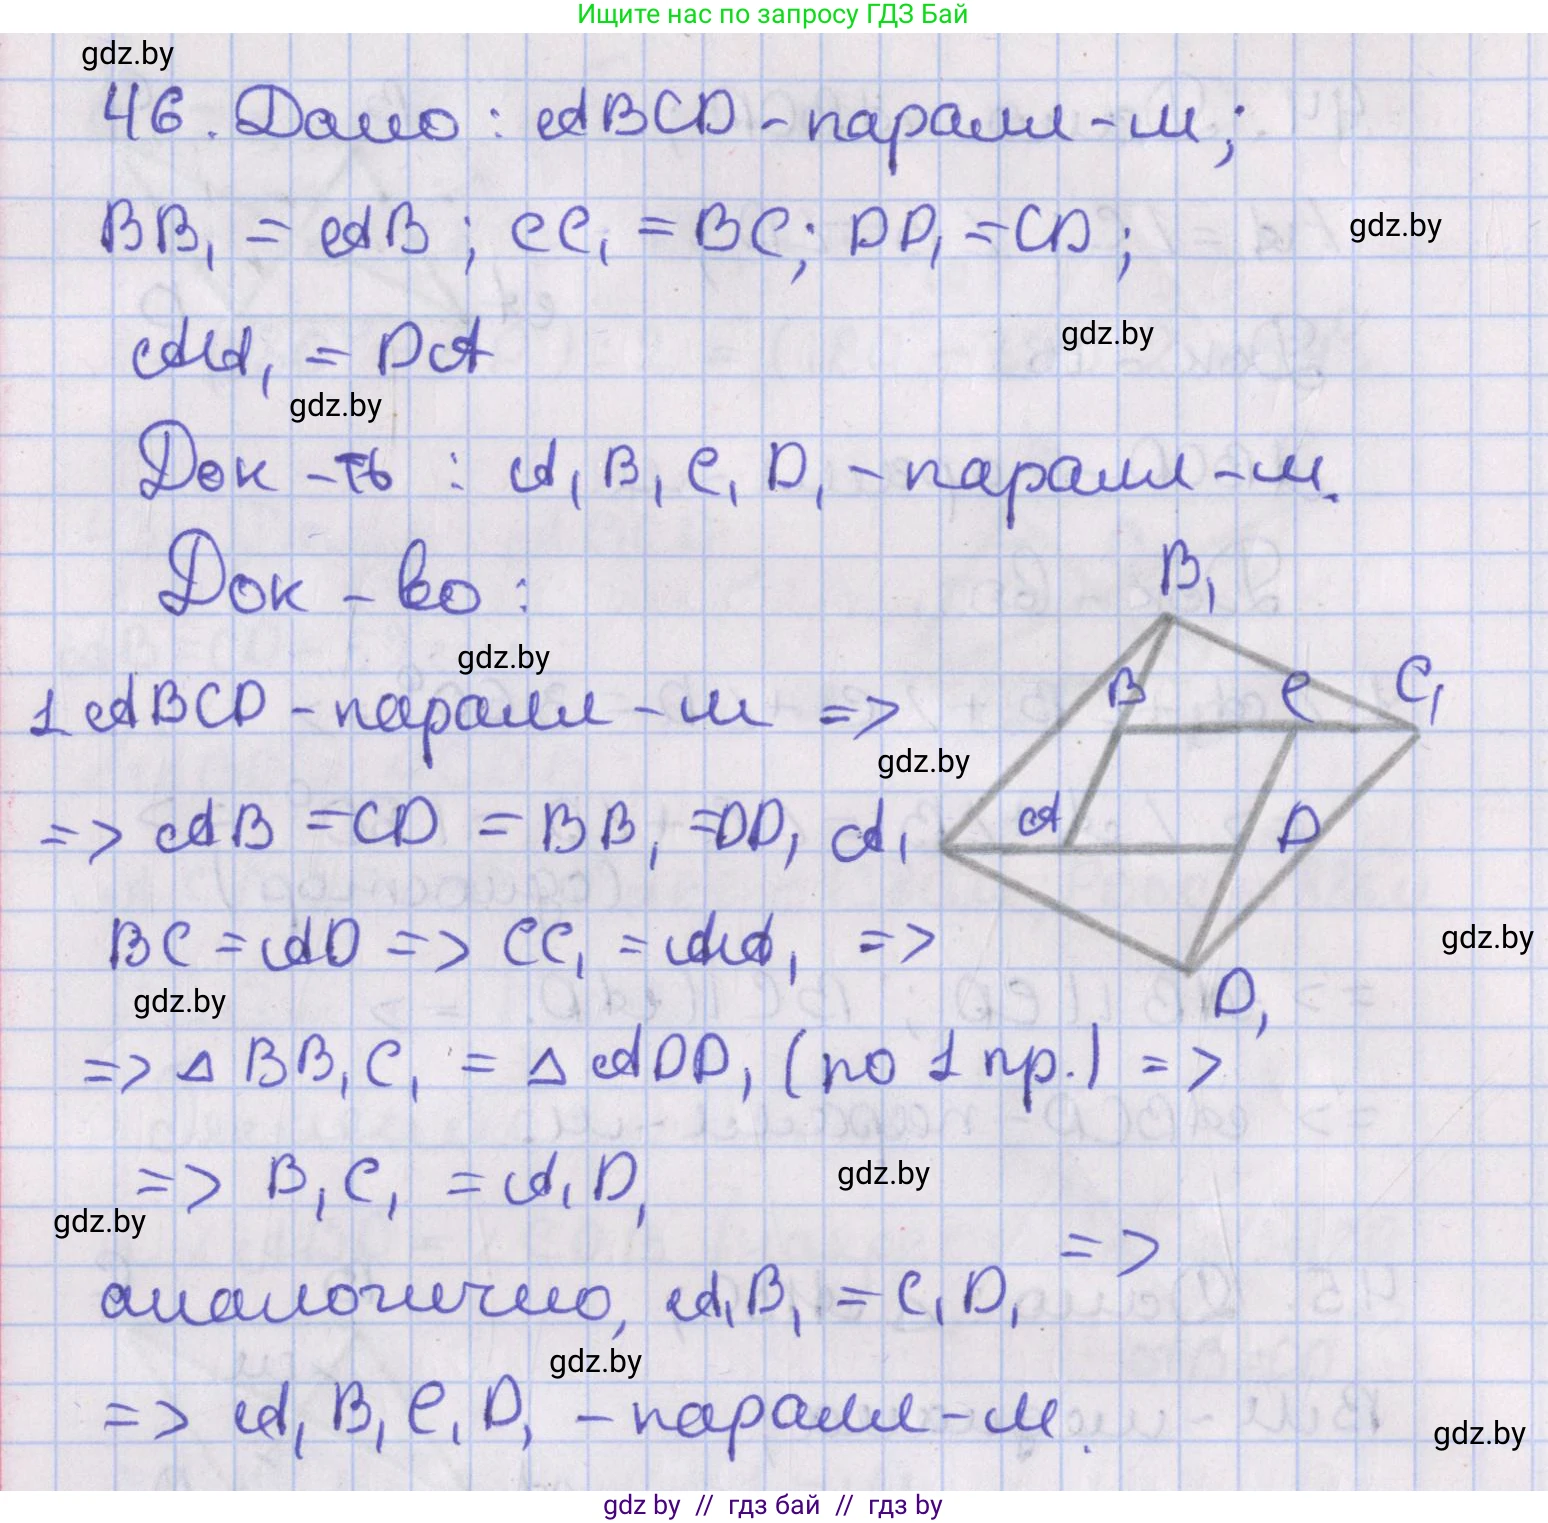 Ищите нас по запросу ГДЗ Бай
gdz.by
46. Дано: ABCD - паралл-м;
BB₁ = AB; CC₁ = BC; DD₁ = CD;
gdz.by
AA₁ = DA
gdz.by
gdz.by
Док-ть: A₁B₁C₁D₁ - паралл-м.
Док-во:
B₁
gdz.by
B
C
C₁
1 ABCD - паралл-м =>
gdz.by
=> AB = CD = BB₁ = DD₁
A₁
A
D
BC = AD => CC₁ = AA₁ =>
gdz.by
gdz.by
D₁
=> Δ BB₁C₁ = Δ ADD₁ (по 1 пр.) =>
=> B₁C₁ = A₁D₁
gdz.by
gdz.by
аналогично, A₁B₁ = C₁D₁ =>
gdz.by
=> A₁B₁C₁D₁ - паралл-м.
gdz.by
gdz by // гдз бай // гдз by